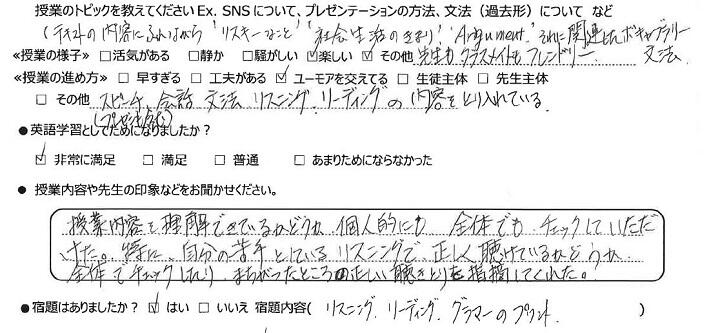 授業のトピックを教えてください Ex. SNSについて、プレゼンテーションの方法、文法（過去形）について など
(テキストの内容にふれながら 'リスキーなこと' '社会生活のきまり' 'Argument' それに関連したボキャブラリー 文法
≪授業の様子≫ □活気がある □静か □騒がしい ☑楽しい ☑その他 先生もクラスメイトも フレンドリー
≪授業の進め方≫ □ 早すぎる □ 工夫がある ☑ ユーモアを交えてる □ 生徒主体 □ 先生主体
□ その他 スピーチ、会話 文法 リスニング、リーディングの内容をとり入れている。
●英語学習としてためになりましたか？
☑ 非常に満足 □ 満足 □ 普通 □ あまりためにならなかった
● 授業内容や先生の印象などをお聞かせください。
授業内容を理解できているかどうか 個人的にも 全体でも チェックしていただ
けた。特に、自分の苦手としているリスニングで、正しく聴けているかどうか
全体でチェックしたり、まちがったところの正しい聴きとりを指摘してくれた。
●宿題はありましたか？ ☑ はい □ いいえ 宿題内容( リスニング、リーディング、グラマーのプリント )